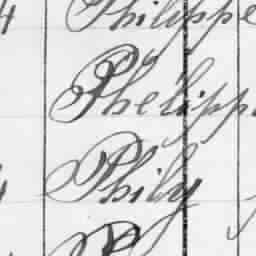 Philippe
Phelipp
Phily